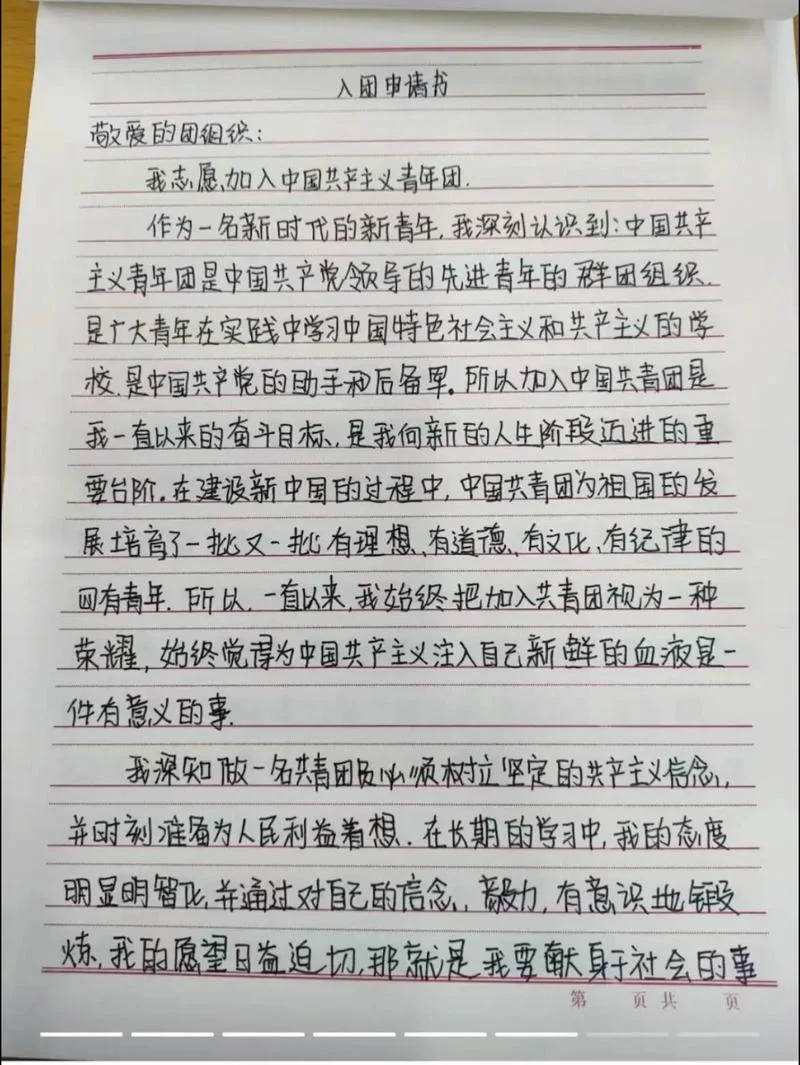 入团申请书
敬爱的团组织：
我志愿加入中国共产主义青年团.
作为一名新时代的新青年,我深刻认识到：中国共产
主义青年团是中国共产党领导的先进青年的群团组织.
是广大青年在实践中学习中国特色社会主义和共产主义的学
校.是中国共产党的助手和后备军。所以加入中国共青团是
我一直以来的奋斗目标,是我向新的人生阶段迈进的重
要台阶。在建设新中国的过程中,中国共青团为祖国的发
展培育了一批又一批有理想、有道德、有文化、有纪律的
四有青年.所以.一直以来,我始终把加入共青团视为一种
荣耀,始终觉得为中国共产主义注入自己新鲜的血液是一
件有意义的事.
我深知做一名共青团员必须树立坚定的共产主义信念,
并时刻准备为人民利益着想.在长期的学习中,我的态度
明显明智化,并通过对自己的信念、毅力,有意识地锻
炼,我的愿望日益迫切,那就是我要献身于社会的事
第 页共 页